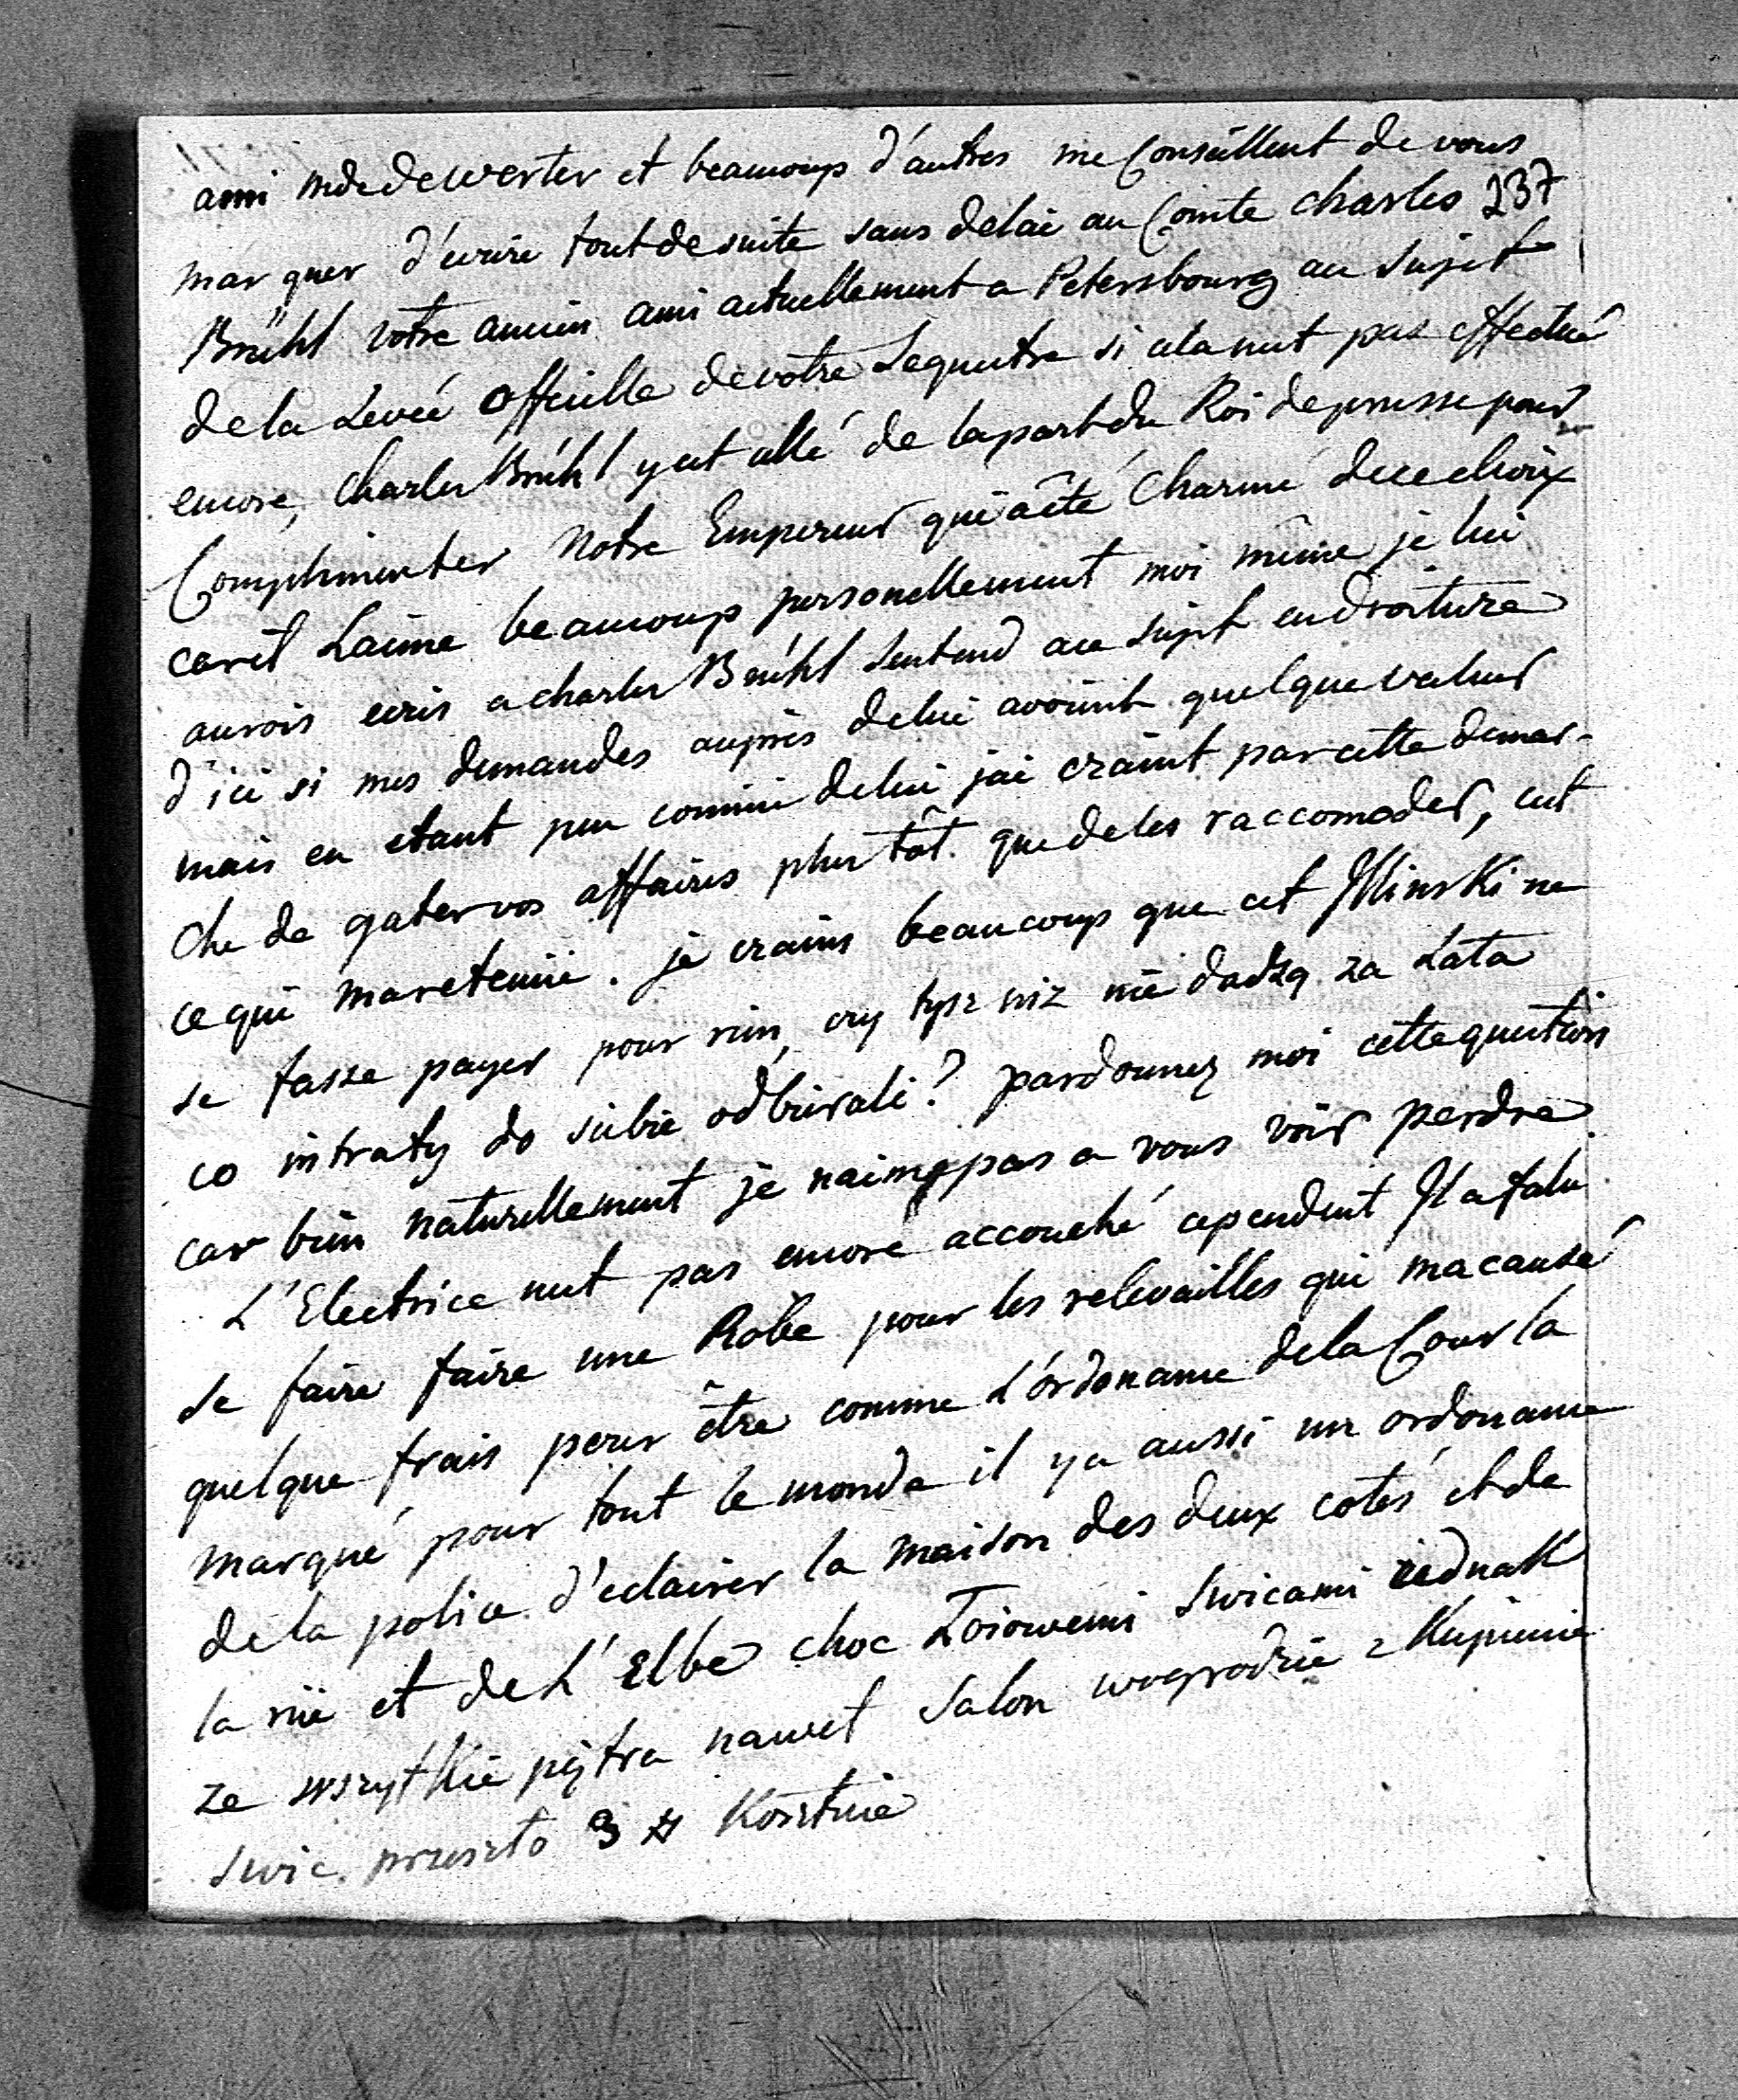 ami mde de werter et beaucoup d'autres me Conseillent de vous
237
marquer d'ecrire tout de suite sans delai au Comte charles
Brühl votre ancien ami actuellement a Petersbourg au sujet
de la Levée officielle de votre Sequestre si cela nest pas effectué
encore, Charles Brühl y est allé de la part du Roi de prusse pour
Complimenter Notre Empereur qui a été Charmé de ce choix
car il L'aime beaucoup personellement moi même je lui
aurois ecris a charles Brühl s'entend au sujet en droiture
d'ici si mes demandes auprès de lui avoient quelque valeur
mais en etant peu connue de lui jai craint par cette demar-
che de gater vos affaires plus tôt que de les raccomoder, cest
ce qui ma retenüe. je crains beaucoup que cet Illinski ne
se fasse payer pour rien, czy tysz niz nie dadzą za Lata
co intraty do siebie odbierali? pardonnez moi cette question
car bien naturellement je naime pas a vous voir perdre
L'Electrice nest pas encore accouché cependent Il a falu
se faire faire une Robe pour les relevailles qui ma causé
quelque frais pour être comme L'ordonance de la Cour la
marqué pour tout le monde il y a aussi un ordonance
de la police d'eclairer la maison des deux cotés et de
la rüe et de L'Elbe choc Loiowemi swicami iednak
ze wszytkie piętra nawet Salon wogrodzie z Kupienie
swic. przeszło 3 # Kosztuie